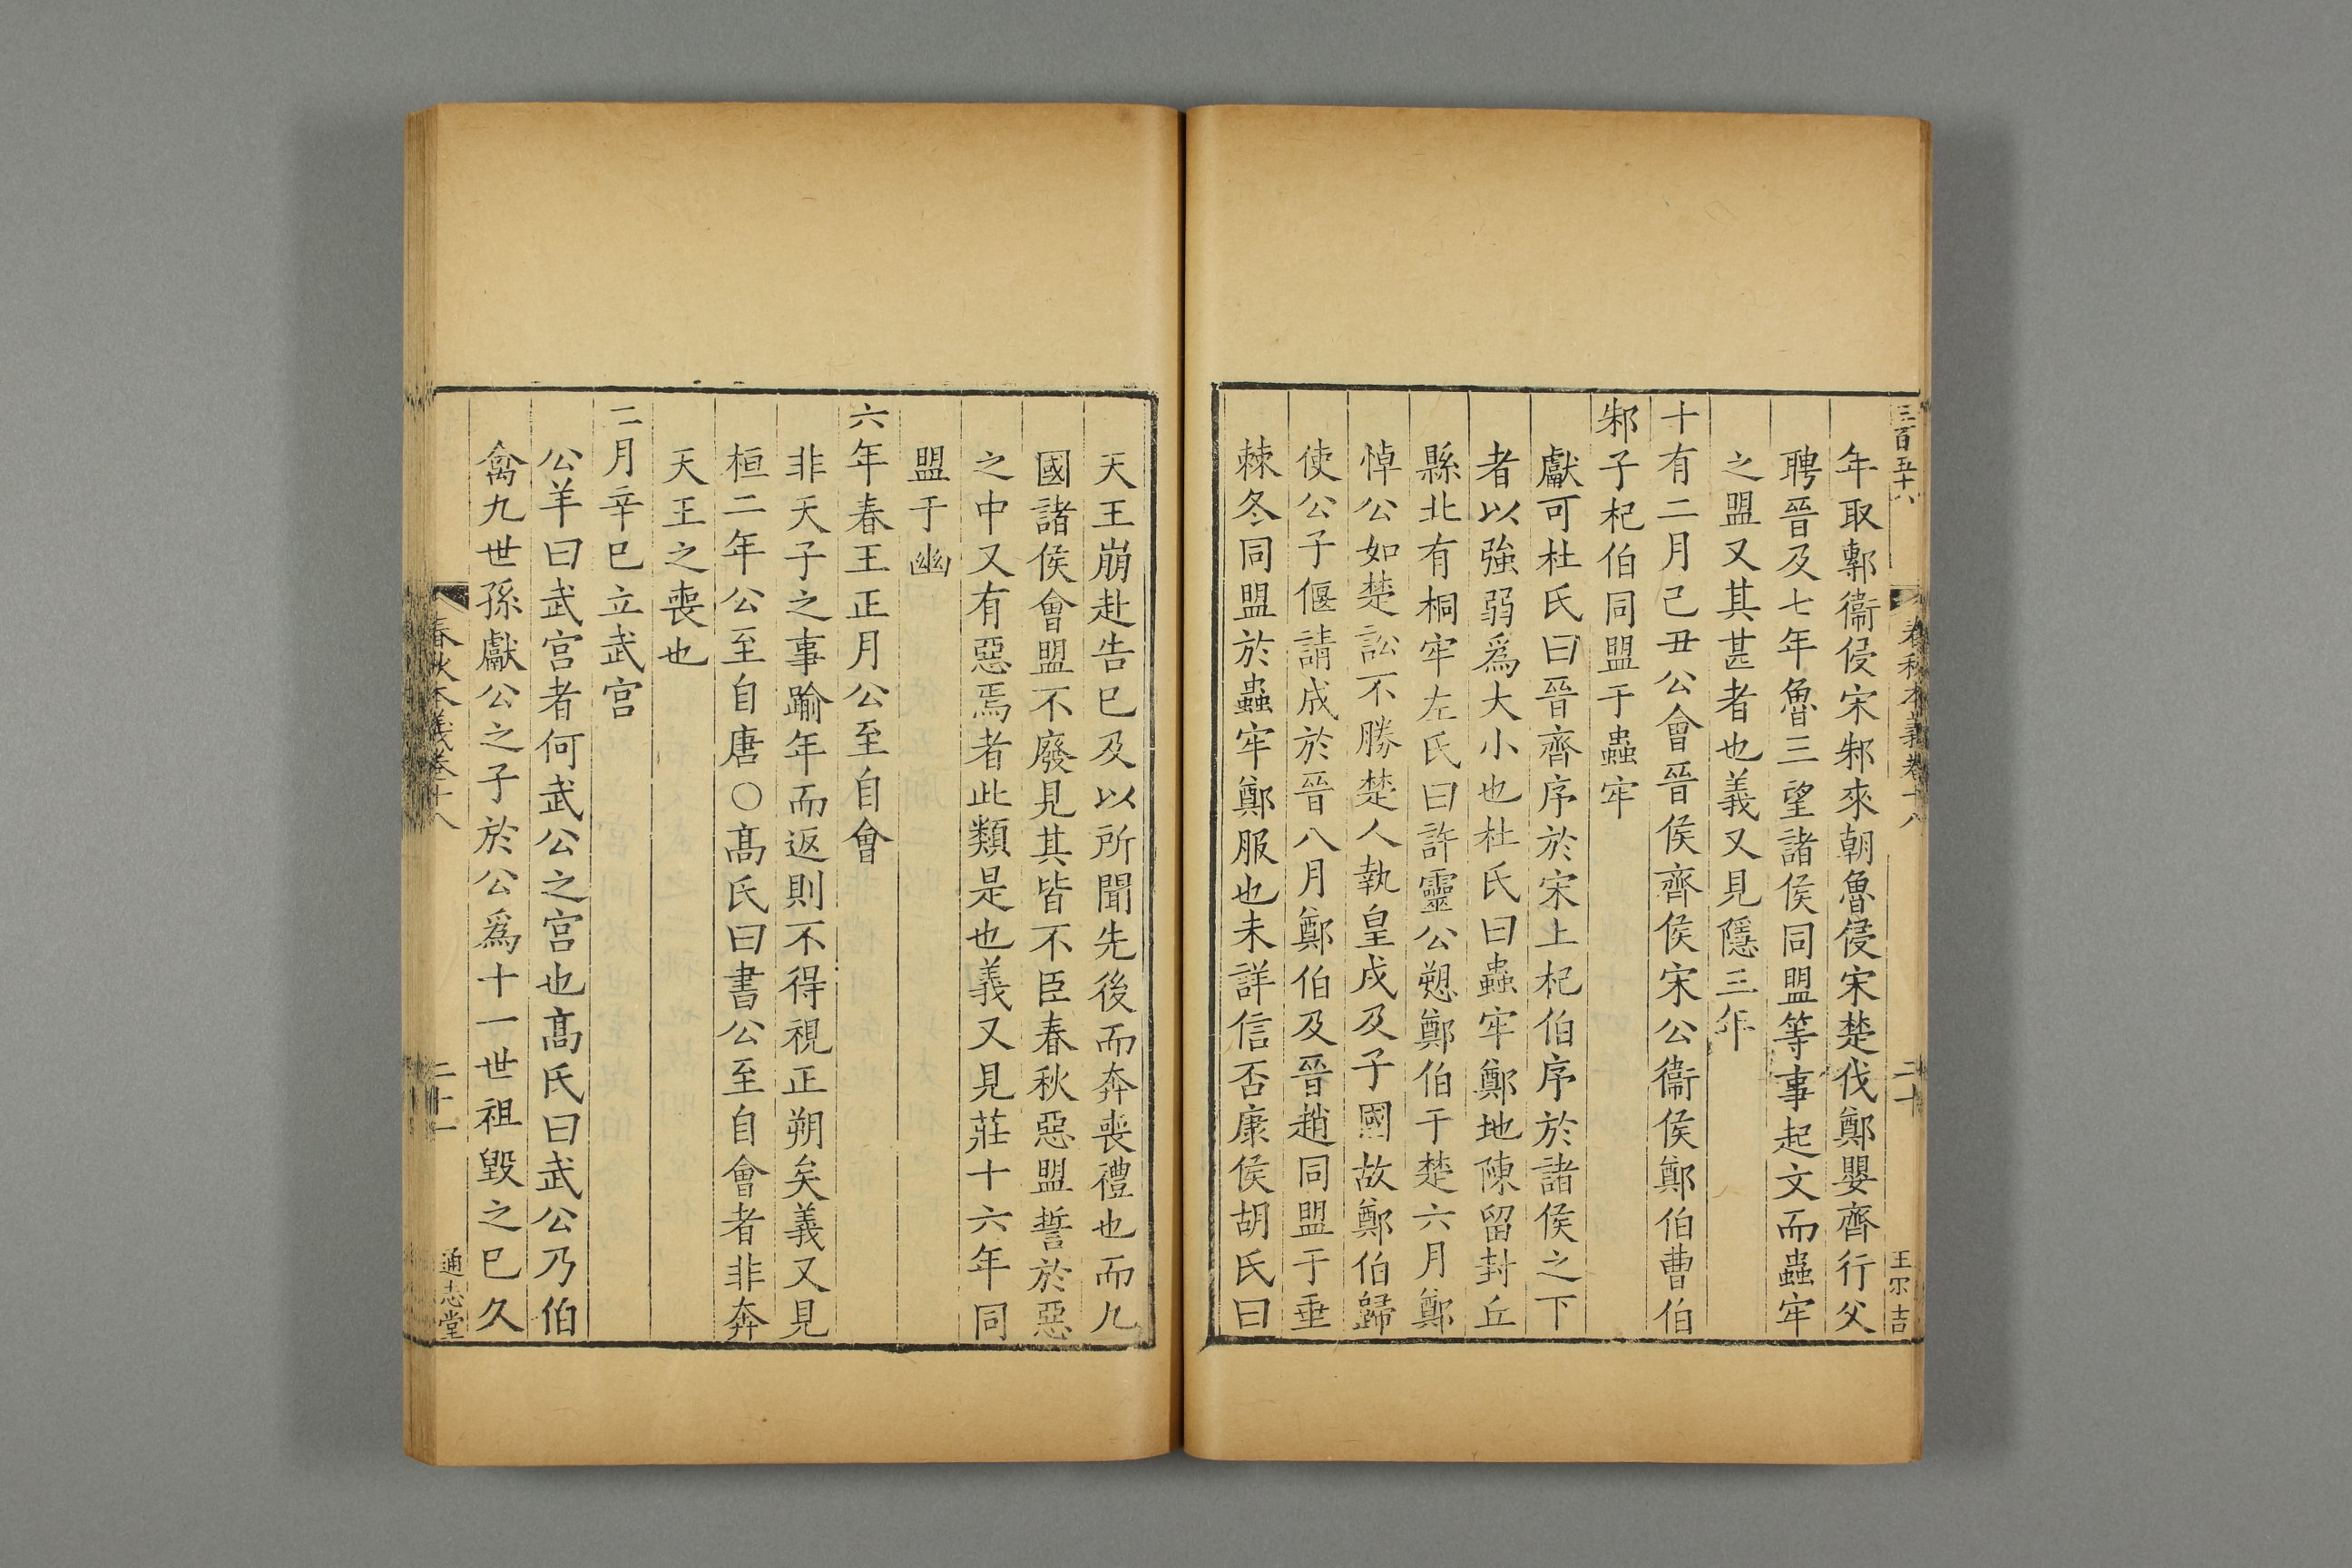 三百五十八
春秋本義卷十八
二十
王尔吉
年取鄟衞侵宋邾來朝魯侵宋楚伐鄭嬰齊行父
聘晉及七年魯三望諸侯同盟等事起文而蟲牢
之盟又其甚者也義又見隱三年
十有二月己丑公會晉侯齊侯宋公衞侯鄭伯曹伯
邾子杞伯同盟于蟲牢
獻可杜氏曰晉齊序於宋上杞伯序於諸侯之下
者以強弱爲大小也杜氏曰蟲牢鄭地陳留封丘
縣北有桐牢左氏曰許靈公愬鄭伯于楚六月鄭
悼公如楚訟不勝楚人執皇戌及子國故鄭伯歸
使公子偃請成於晉八月鄭伯及晉趙同盟于垂
棘冬同盟於蟲牢鄭服也未詳信否康侯胡氏曰
天王崩赴告已及以所聞先後而奔喪禮也而九
國諸侯會盟不廢見其皆不臣春秋惡盟誓於惡
之中又有惡焉者此類是也義又見莊十六年同
盟于幽
六年春王正月公至自會
非天子之事踰年而返則不得視正朔矣義又見
桓二年公至自唐〇髙氏曰書公至自會者非奔
天王之喪也
二月辛巳立武宫
公羊曰武宫者何武公之宫也髙氏曰武公乃伯
禽九世孫獻公之子於公爲十一世祖毀之已久
春秋本義卷十八
二十一
通志堂